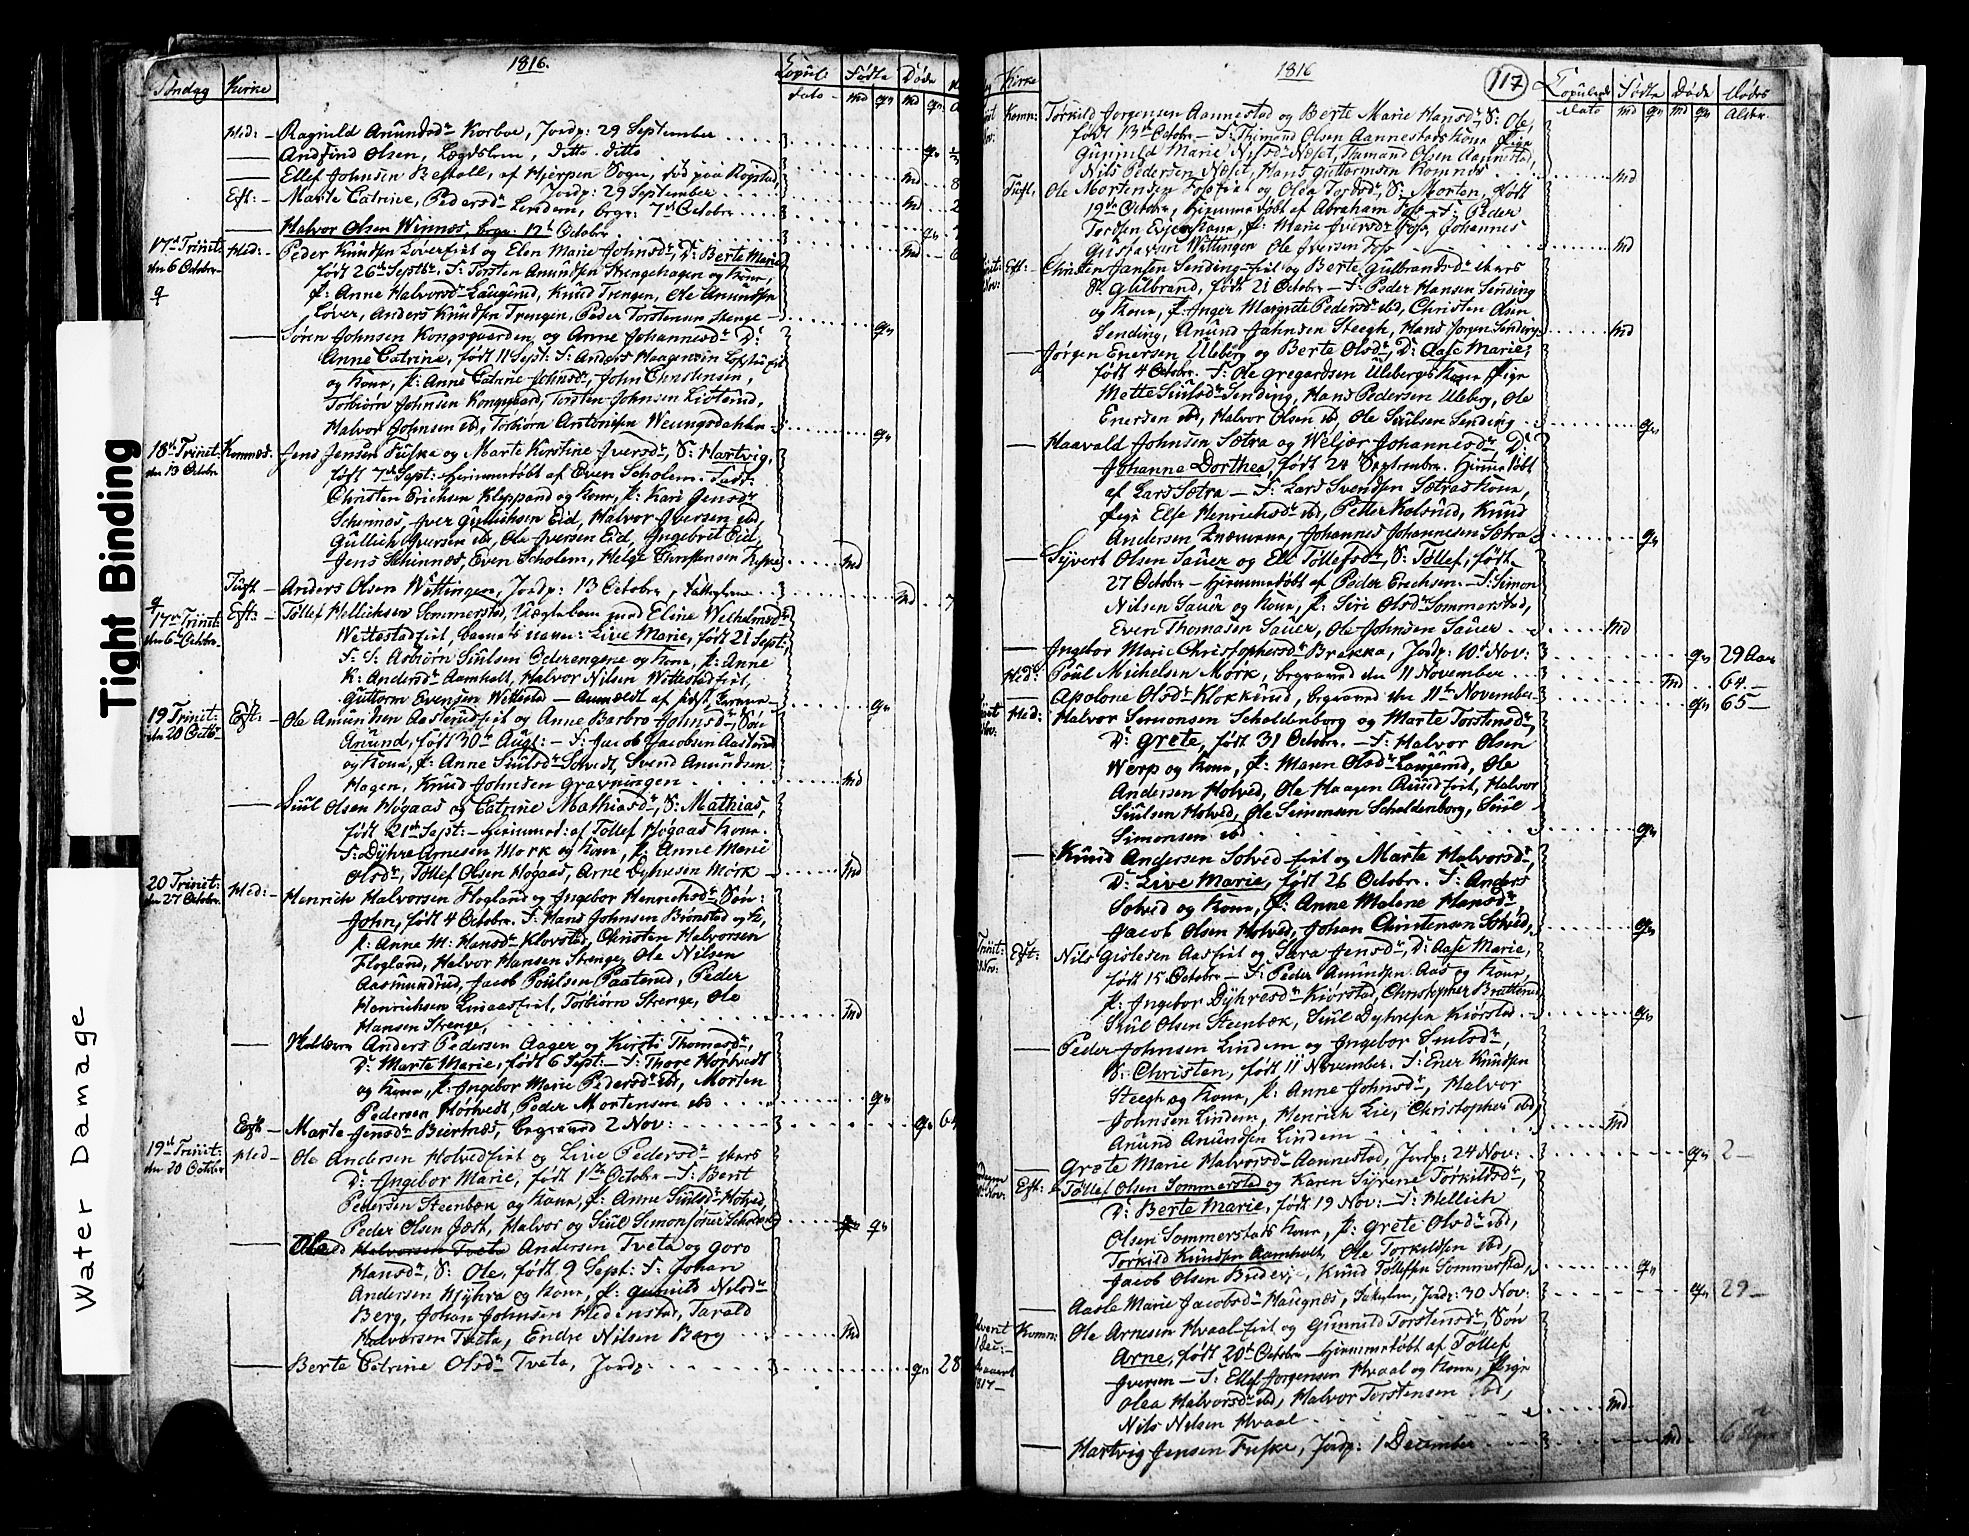 1816.
Søndag Kirke Copul: Fødte Døde
Dato md qv md qv
Med: - Ragnild Amundsdr Korboe, Jordp: 29 September qv
Andfind Olsen, Lægdslem, ditto ditto md 8
Ellef Johnsen Bestoll, af Hjerpen Sogn, død paa Rogstad,
Jordp: 29 September md 2
Eft: - Marte Catrine, Pedersdr Lindem, begr: 7de October qv
Halvor Olsen Winnes, begr: 17de October md 6
17de Trinit: Med: - Peder Knudsen Løverfiel og Elen Marie Johnsdr, D: Berte Marie,
den 6 October født 26de Septbr, F: Torsten Amundsen Strengehagen og Kone,
P: Anne Halvorsd- Laugerud, Knud Trengen, Ole Amundsen
Løver, Anders Knudsen Trengen, Peder Torstensen Stenge qv
Søren Johnsen Kongsgaarden, og Anne Johannesdr D:
Anne Catrine, født 11 Sept: F: Anders Haagensen
og Kone, P: Anne Catrine Johnsdr, John Christensen,
Torbiørn Johnsen Kongsgaard, Torsten Johnsen Liøterud,
Halvor Johnsen ibd, Torbiørn Antonisen Weungsdahlen qv
18de Trinit: Kommæd. Jens Jensen Fuske og Marte Kirstine Iversdr, S: Hartvig,
den 13 Octobr født 7de Sept: Hiemmedøbt af Even Scholem. Fadd:
Christen Erichsen Kleppand og Kone, P: Kari Jensdr
Schinnæs, Iver Gullichsen Eid, Halvor Iversen ibd,
Gullich Iversen ibd, Ole Iversen Eid, Ingebret Eid,
Jens Schinnæs, Even Scholem, Helge Christensen md
Tuft - Anders Olsen Wettingen, Jordp: 13 October, md 7
17de Trinit: Eft: - Tollef Hellichsen Sommerstad, og Eline Wilhelmsdr
den 6te Octobr Wettestadfiel, barnets navn: Live Marie, født 21 Sept:
F: S: Asbiørn Siulsen Oderengene og Kone, P: Anne
K: Andersd Aamholt, Halvor Nilsen Wettestadfiel,
Guttorm Evensen Wettestad - Anmeldt af qv
19 Trinit: Eft: - Ole Amundsen Aasterudfiel og Anne Barbro Johnsd-, Søn
den 20 Octb Amund, født 30te Aug: - F: Jacob Jacobsen Aasterud
og Kone, P: Anne Siulsd- Solvedt, Svend Amundsen
Hagen, Knud Johnsen Gravningen md
Siul Olsen Høgaas og Catrine Mathiasdr, S: Mathias,
født 21de Sept: - Hiemmed: af Tollef Høgaas Kone.
F: Dyhre Arnesen Mork og Kone, P: Anne Marie
Olsdr, Tollef Olsen Høgaas, Arne Dyhresen Mork md
20 Trinit: Med: - Henrich Halvorsen Flogland og Ingebor Henrichsdr, Søn:
den 27 October. John, født 4 October. F: Hans Johnsen Brønstad og K,
P: Anne M: Hansdr Klovstad, Christen Halvorsen
Flogland, Halvor Hansen Strenge, Ole Nilsen
Aasmundrud, Jacob Poulsen Paaterud, Peder
Henrichsen Linaasfiel, Torbiørn Strenge, Ole
Hansen Strenge, md
Anders Pedersen Aager og Kirsti Thomasdr,
D: Marte Marie, født 6 Sept: - F: Thore Hortvedt
og Kone, P: Ingebor Marie Pedersdr ibd, Morten
Pedersen Hørtvedt, Peder Mortensen ibd qv
Eft - Marte Jensdr Beiernæs, begraved 2 Nov: qv 64
19de Trinit: Med - Ole Andersen Holvedfiel og Live Pedersdr
den 20 October D: Ingebor Marie, født 1ste October - F: Bent
Pedersen Steenbæk og Kone, P: Anne Siulsdr Holved,
Peder Olsen Jæst, Halvor og Siul Simonsønner qv
Ole Halvorsen Tveta Andersen Tveta og Goro
Hansdr, S: Ole, født 9 Sept: F: Johan
Andersen Myhra og Kone, P: Gunnild Nilsd-
Berg, Johan Johnsen Medenstad, Tarald
Halvorsen Tveta, Endre Nilsen Berg md
Berte Catrine Olsdr Tveta, Jordp: qv 28
1816 117
Kirke Copulerede Fødte Døde Dødes
Dato md qv md qv Alder.
Komn: Torkild Jorgensen Aannestad og Berte Marie Hansdr, S: Ole,
født 13de October - F: Thimand Olsen Aannestads Kone, Pige
Gunnild Marie Nilsdr Næset, Thimand Olsen Aannestad,
Nils Pedersen Næset, Hans Guttormsen Komnæs md
Tuft. Ole Mortensen Fossfiel og Olea Tordsdr, S: Morten, født
19de October, Hiemmedøbt af Abraham Foss - F: Peder
Tordsen Kone, P: Marie Iversdr Foss, Johannes
Gustavsen Wettingen, Ole Iversen Foss md
Eft: - Christen Jansen Sending-fiel og Berte Gulbrandsdr
S: Gulbrand, født 21 October - F: Peder Hansen Sending
og Kone, P: Inger Margrete Pedersdr ibd, Christen Olsen
Sending, Amund Johnsen Steegh, Hans Jorgen Sending md
Jørgen Enersen Uleberg og Berte Olsdr, D: Aase Marie,
født 4 October. F: Ole Gregardsen Ulebergs Kone, Pige
Mette Siulsdr Sending, Hans Pedersen Uleberg, Ole
Enersen ibd, Halvor Olsen ibd, Ole Siulsen Sending qv
Haavald Johnsen Sætra og Weljær Johannesdr D:
Johanne Dorthea, født 24 September. Hiemmedøbt
af Lars Sætra - F: Lars Svendsen Sætras Kone,
Pige Else Henrichsdr ibd, Peter Kolsrud, Knud
Andersen, Johannes Johannesen Sætra qv
Syvert Olsen Sauer og Eli Tollefsdr, S: Tollef, født
27 October - Hiemmedøbt af Peder Erichsen. - F: Simon
Nilsen Sauer og Kone, P: Siri Olsdr Sommerstad,
Even Thomasen Sauer, Ole Johnsen Sauer md
Ingebor Marie Christophersdr Brekka, Jordp: 10de Nov: qv 29 Aar
Med: Poul Michelsen Mork, begraved den 11 November md 64 -
Apolone Olsdr Klokkerud, begraved den 11te November qv 65 -
Med: Halvor Simonsen Scholdenborg og Marte Torstensdr,
D: Grete, født 31 October. - F: Halvor Olsen
Werp og Kone, P: Maren Olsdr Laugerud, Ole
Andersen Holved, Ole Haagen Rundfiel, Halvor
Siulsen Holved, Ole Simonsen Scholdenborg, Siul
Simonsen ibd qv
Knud Andersen Solved-fiel og Marte Halvorsdr,
D: Live Marie, født 26 October. F: Anders
Solved og Kone, P: Anne Malene Hansdr,
Jacob Olsen Holved, Johan Christensen Solved, qv
Eft: Nils Gislesen Aasfiel og Sara Jensdr, D: Aase Marie,
født 15 October - F: Peder Amundsen Aas og Kone,
P: Ingebor Dyhresdr Kiørstad, Christopher Bratterud
Siul Olsen Steenbæk, Siul Dyhresen Kiørstad qv
Peder Johnsen Lindem og Ingebor Siulsdr,
S: Christen, født 11 November. F: Ener Knudsen
Steegh og Kone, P: Anne Johnsdr, Halvor
Johnsen Lindem, Henrich Lie, Christopher ibd,
Amund Amundsen Lindem md
Grete Marie Halvorsdr Aannestad, Jordp: 24 Nov: qv 2 -
Eft: Tollef Olsen Sommerstad og Karen Syrene Torkildsdr,
D: Berte Marie, født 19 Nov: - F: Hellich
Olsen Sommerstads Kone, P: Grete Olsdr ibd,
Torkild Knudsen Aamholt, Ole Torkildsen ibd,
Jacob Olsen, Knud Tollefsen Sommerstad, qv
Aasle Marie Jacobsdr Haugnæs, Jordp: 30 Nov: qv 29 -
Komn: Ole Arnesen Hvaal-fiel og Gunnild Torstensdr, Søn
1 Dec: Arne, født 20de October - Hiemmedøbt af Tollef
Iversen - F: Ellef Jorgensen Hvaal og Kone, Pige
1817 - Olea Halvorsdr ibd, Halvor Torstensen ibd,
Nils Nilsen Hvaal md
Hartvig Jensen Fuske, Jordp: 1 December md
Tight Binding
Water Damage